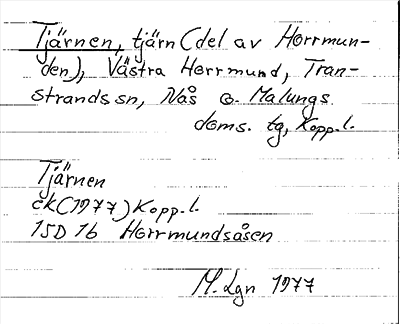 Tjärnen, tjärn (del av Horrmun-
den), Västra Horrmund, Tran-
strands sn, Nås o. Malungs
doms. tg, Kopp.l.
Tjärnen
ek (1977) Kopp.l.
15D 1b Horrmundsåsen
M. Lgn 1977